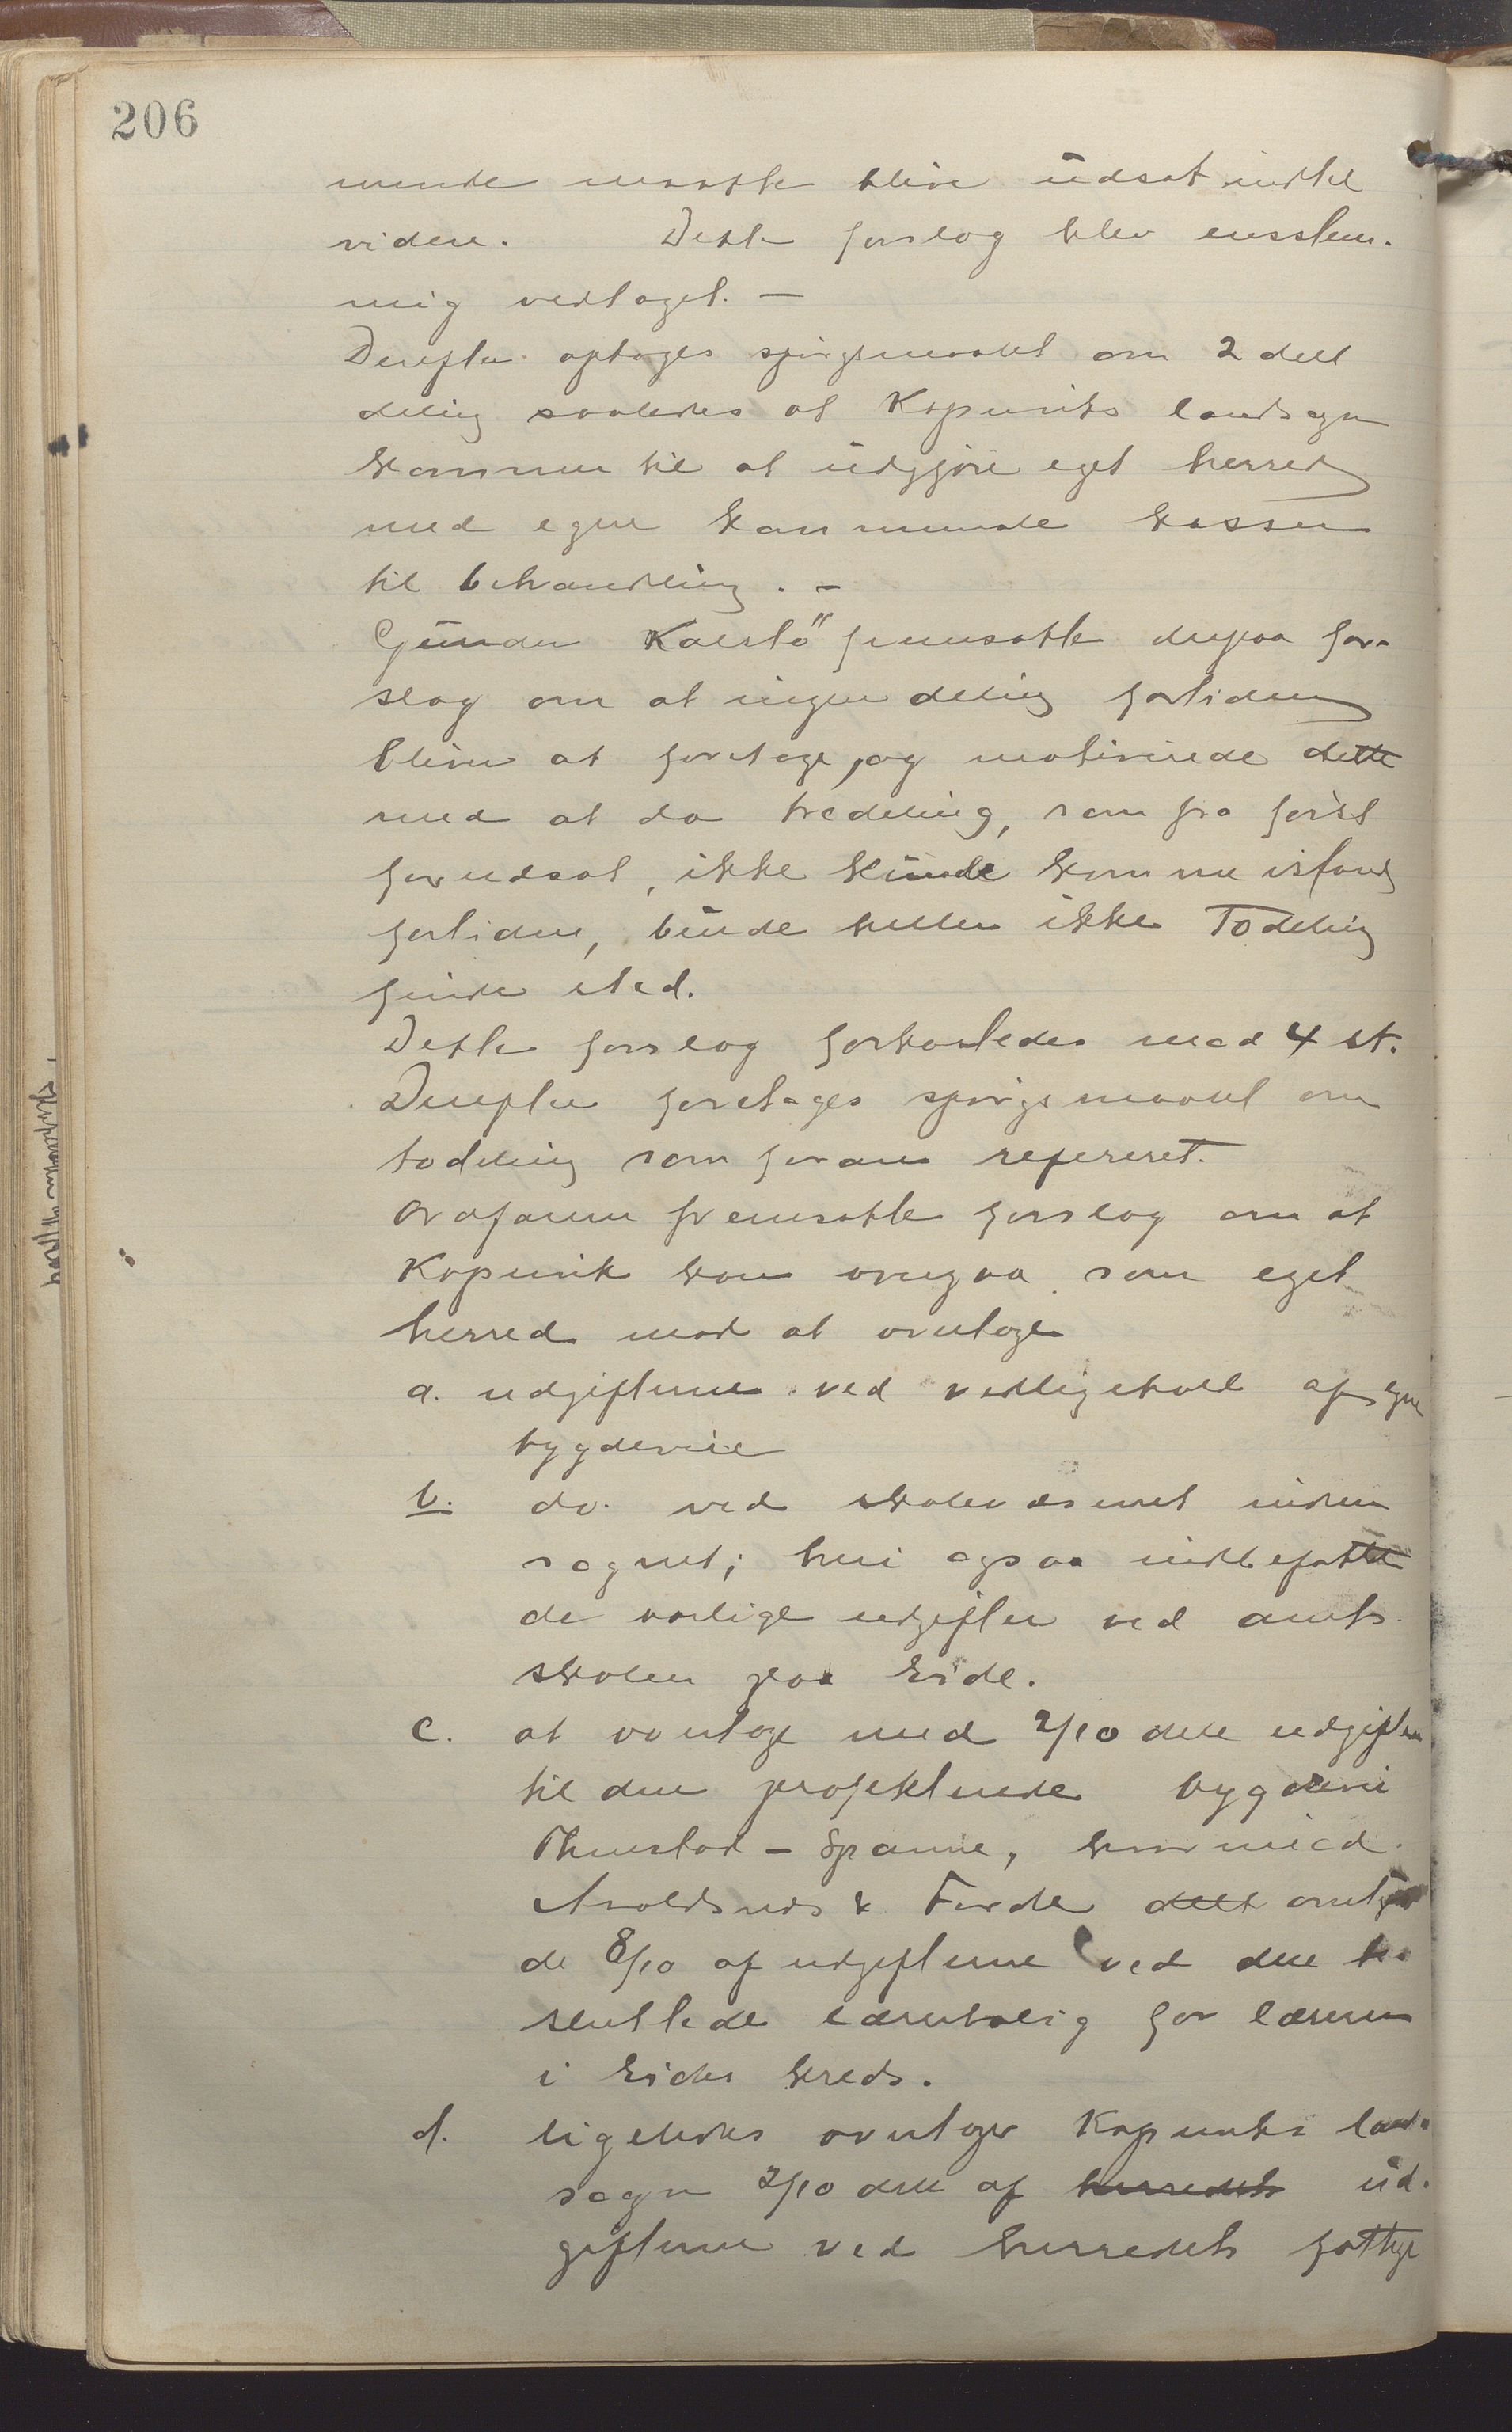 206
munde maatte blive udsat indtil
videre. Dette forslag blev enstem-
mig vedtaget. —
Derefter optoges spørgsmaalet om 2 delt
deling saaledes at Kopervits landsogn
kommer til at udgjøre eget herred
med egne kommunale kasser
til behandling. –
Gunder Kalstø fremsatte derpaa for-
slag om at ingen deling fortiden
bliver at foretage, og motiverede dette
med at da tredeling, som fra først
forudsat, ikke kunde komme istand
fortiden, burde heller ikke Todeling
finde sted.
Dette forslag forkastedes med 4 st.
Derefter foretages spørgsmaalet om
todeling som foran refereret.
Ordføreren fremsatte forslag om at
Kopervik kan overgaa som eget
herred mod at overtage
a. udgifterne ved vedligehold af egne
bygdeveie
b. do. ved skolevæsenet inden
sognet; heri ogsaa indbefattet
de aarlige udgifter ved amts-
skolen paa Eide.
c. at overtage med 2/10 dele udgiften
til den projekterede bygdevei
– Spanne, hvorimod
Avaldsnes & Førde delt overtager
de 8/10 af udgifterne ved den be-
sluttede lærerbolig for læreren
i Eides kreds.
d. ligeledes overtager Kopervits land-
sogn 2/10 dele af herredets ud-
gifterne ved herredets fattige